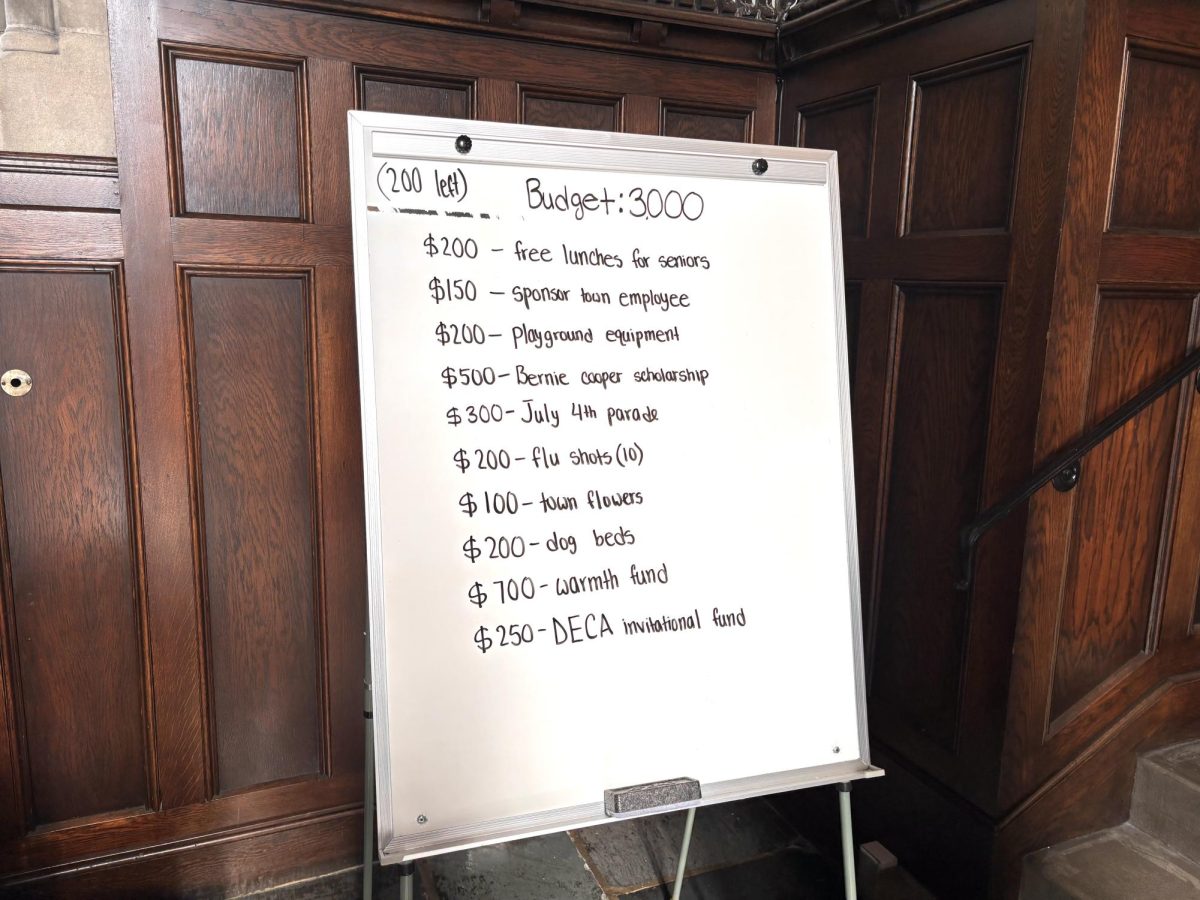 (200 left)
Budget: 3,000
$200 - free lunches for seniors
$150 - sponsor town employee
$200 - Playground equipment
$500 - Bernie cooper scholarship
$300 - July 4th parade
$200 - flu shots (10)
$100 - town flowers
$200 - dog beds
$700 - warmth fund
$250 - DECA invitational fund